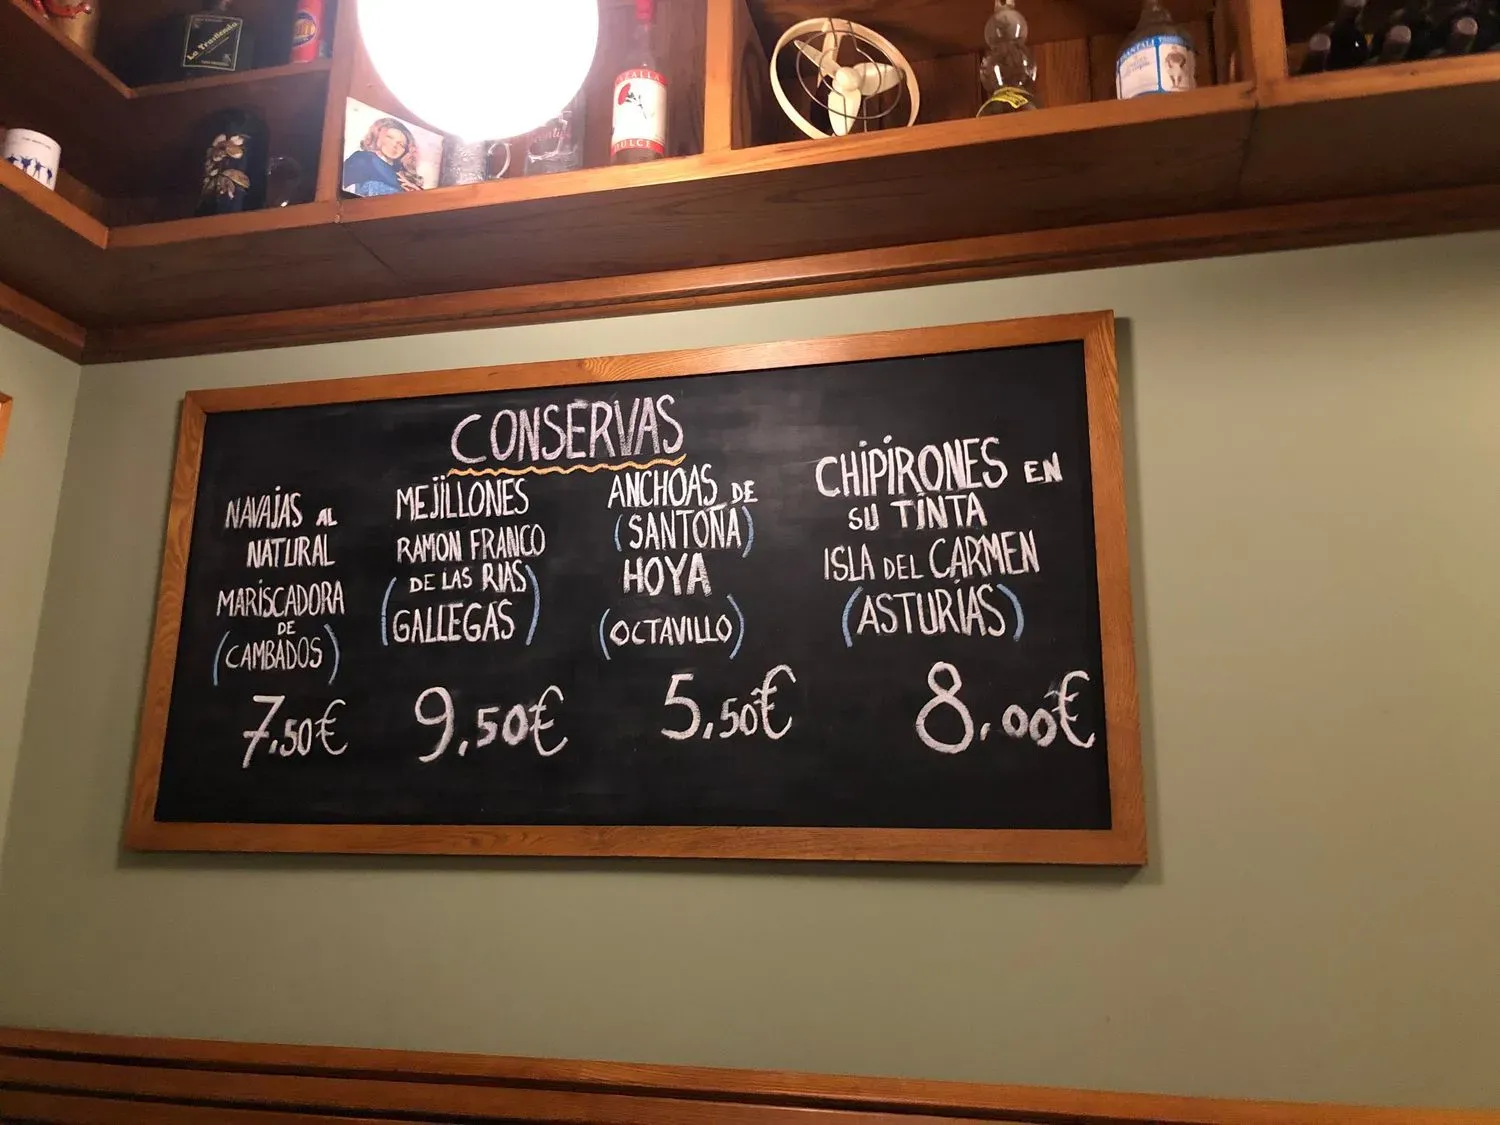 La Trasliendo
CAZALLA
DULCE
CONSERVAS
NAVAJAS AL
NATURAL
MARISCADORA
DE
(CAMBADOS)
7,50€
MEJILLONES
RAMON FRANCO
(DE LAS RIAS
GALLEGAS)
9,50€
ANCHOAS DE
(SANTOÑA)
HOYA
(OCTAVILLO)
5,50€
CHIPIRONES EN
SU TINTA
ISLA DEL CARMEN
(ASTURIAS)
8,00€